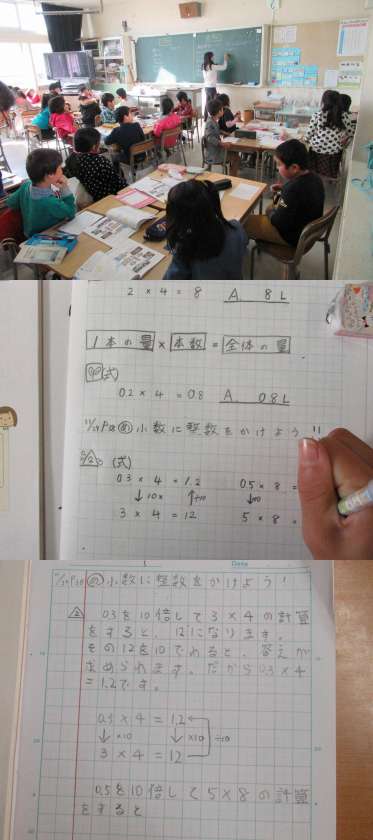 2 × 4 = 8 A 8L
1本の量 × 本数 = 全体の量
(式)
0.2 × 4 = 0.8 A 0.8L
小数に整数をかけよう!!
(式)
0.3 × 4 = 1.2 0.5 × 8 =
↓10× ↑÷10 ↓×10
3 × 4 = 12 5 × 8 =
Date
小数に整数をかけよう!
0.3を10倍して3×4の計算
をすると、12になります。
その12を10でわると、答えが
求められます。だから0.3×4
=1.2です。
0.3 × 4 = 1.2
↓×10 ↓×10 ÷10
3 × 4 = 12
0.5を10倍して5×8の計算
をすると